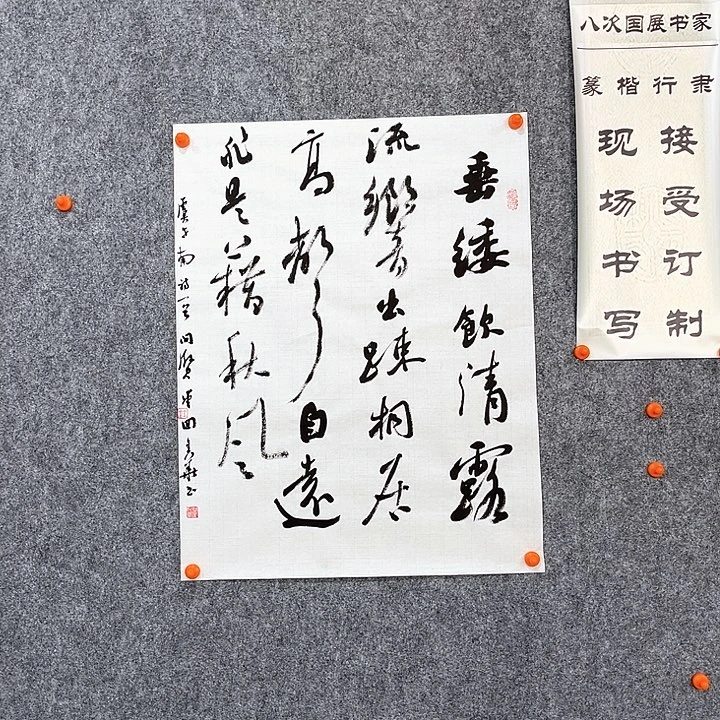 垂緌飲清露
流響出疎桐居
高聲自遠
非是藉秋風
虞世南詩一首
八次国展书家
篆楷行隶
接受订制
现场书写